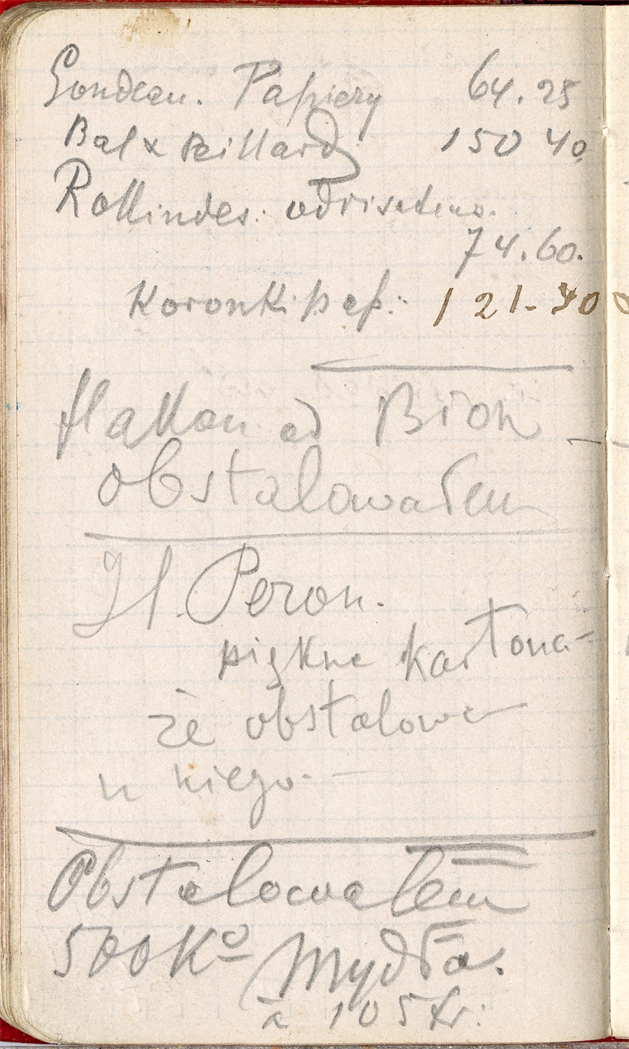 Gondeau. Papiery 64.25
Bal & Beillard 150 40
Rollindes:
74.60.
Koronki pap: 121.40
flakon od Bion
obstalowałem
Jl. Peron.
piękne kartona-
że obstalowa
u niego.—
Obstalowałem
500 Kº Mydła.
à 105 fr: